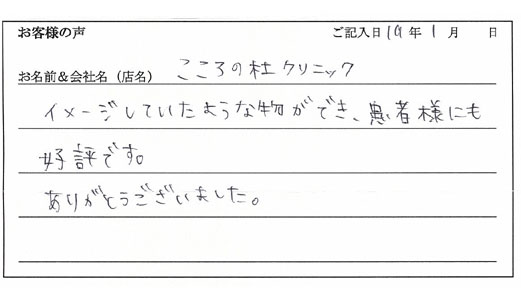 お客様の声 ご記入日 19 年 1 月 日
お名前&会社名(店名) こころの杜クリニック
イメージしていたような物ができ、患者様にも
好評です。
ありがとうございました。